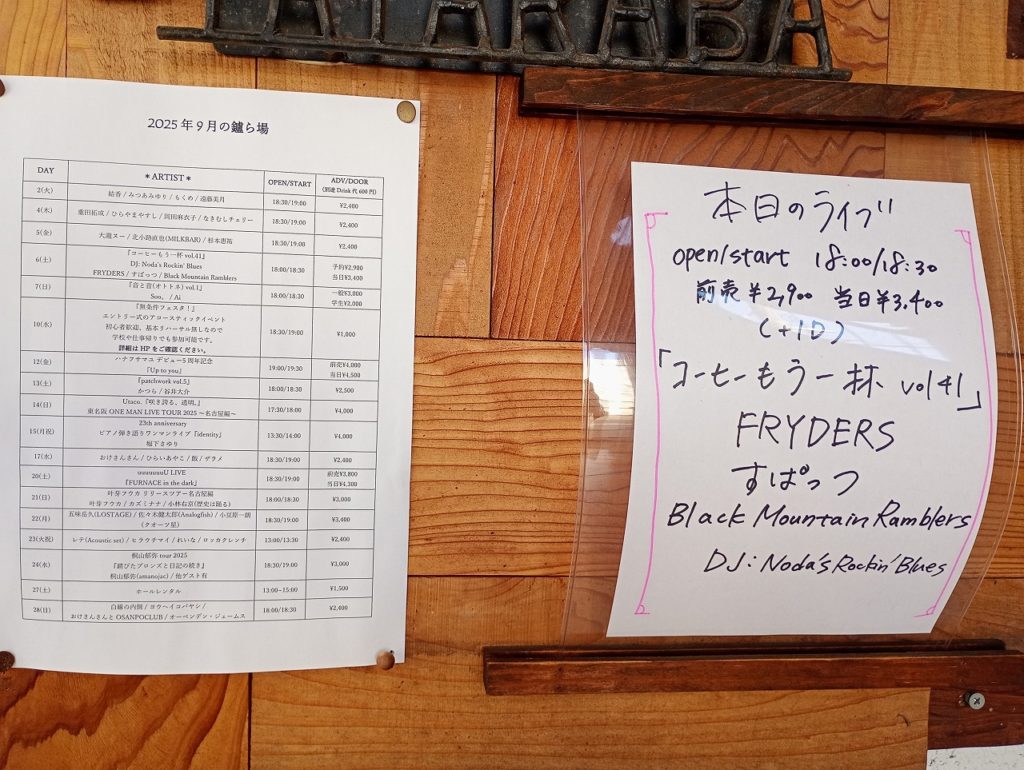 TATARABA
2025年9月の鑪ら場
DAY ＊ARTIST＊ OPEN/START ADV/DOOR
(別途Drink代600円)
2(火) 結香 / みつあみゆり / もくめ / 遠藤美月 18:30/19:00 ¥2,400
4(木) 重田拓成 / ひらやまやすし / 岡田麻衣子 / なきむしチェリー 18:30/19:00 ¥2,400
5(金) 大瀧ヌー / 北小路直也(MILKBAR) / 杉本恵祐 18:30/19:00 ¥2,400
6(土) 『コーヒーもう一杯 vol.41』
DJ: Noda's Rockin' Blues
FRYDERS / すぱっつ / Black Mountain Ramblers
18:00/18:30 予約¥2,900
当日¥3,400
7(日) 『音と音(オトトネ) vol.1』
Soo。 / Ai
18:00/18:30 一般¥3,000
学生¥2,000
10(水) 『無条件フェスタ！』
エントリー式のアコースティックイベント
初心者歓迎、基本リハーサル無しなので
学校や仕事帰りでも参加可能です。
詳細は HP をご確認ください。
18:30/19:00 ¥1,000
12(金) ハナフサマユ デビュー5周年記念
『Up to you』
19:00/19:30 前売¥4,000
当日¥4,500
13(土) 『patchwork vol.5』
かつら / 谷井大介
18:00/18:30 ¥2,500
14(日) Utaco.『咲き誇る、透明。』
東名阪 ONE MAN LIVE TOUR 2025 〜名古屋編〜
17:30/18:00 ¥4,000
15(月祝) 23th anniversary
ピアノ弾き語りワンマンライブ『identity』
堀下さゆり
13:30/14:00 ¥4,000
17(水) おけさんさん / ひらいあやこ / 飯 / ザラメ 18:30/19:00 ¥2,400
20(土) uuuuuuuU LIVE
『FURNACE in the dark』
18:30/19:00 前売¥3,800
当日¥4,300
21(日) 叶芽フウカ リリースツアー名古屋編
叶芽フウカ / カズミナナ / 小林右京(歴史は踊る)
18:00/18:30 ¥3,000
22(月) 五味岳久(LOSTAGE) / 佐々木健太郎(Analogfish) / 小豆原一朗
(クオーツ星)
18:30/19:00 ¥3,400
23(火祝) レテ(Acoustic set) / ヒラウチマイ / れいな / ロッカクレンチ 13:00/13:30 ¥2,400
24(水) 桐山郁弥 tour 2025
『錆びたブロンズと日記の続き』
桐山郁弥(amanojac) / 他ゲスト有
18:30/19:00 ¥3,000
27(土) ホールレンタル 13:00~15:00 ¥1,500
28(日) 白線の内側 / ヨウヘイコバヤシ /
おけさんさんと OSANPOCLUB / オーベンデン・ジェームス
18:00/18:30 ¥2,400
本日のライブ
open/start 18:00/18:30
前売 ¥2,900 当日 ¥3,400
(+1D)
「コーヒーもう一杯 vol 41」
FRYDERS
すぱっつ
Black Mountain Ramblers
DJ: Noda's Rockin' Blues